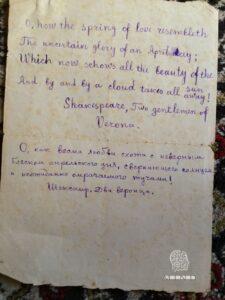 O, how the spring of love resembleth
The uncertain glory of an April day;
Which now schows all the beauty of the sun
And by and by a cloud takes all away!
Shakespeare, Two gentlemen of
Verona.
О, как весна любви схожа с неверным
блеском апрельского дня, сверкающего солнцем
и неожиданно омрачаемого тучами!
Шекспир. Два веронца.